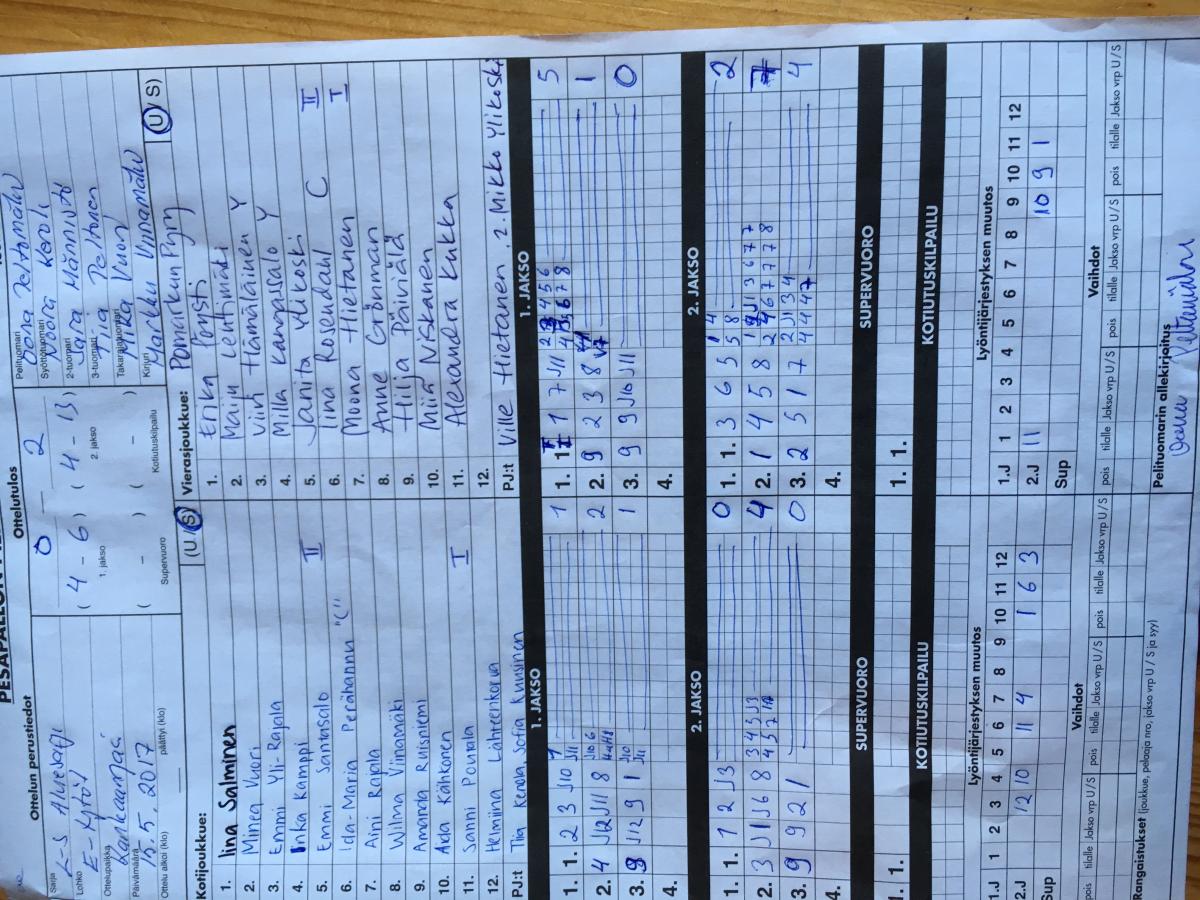 Ottelun perustiedot
Sarja
Lohko
Ottelupaikka
Kankaanpää
Päivämäärä 15.5.2017
Ottelu alkoi (klo)
päättyi (klo)
Ottelutulos
0 – 2
( 4 – 6 ) ( 4 – 13 )
1. jakso
2. jakso
( – ) ( – )
Supervuoro
Kotiutuskilpailu
Pelituomari
Syöttötuomari
2-tuomari
3-tuomari Tiia
Takarajatuomari Mika Vuori
Kirjuri Markku Viinamäki
Kotijoukkue: (U/S)
1. Iina Salminen
2. Minea Vuori
3. Emmi Yli-Rajala
4. Inka Kamppi
5. Emmi Santasalo II
6. Ida-Maria Perähannu "C"
7. Aini Rajala
8. Wilma Viinamäki
9. Amanda Ruisniemi
10. Ada Kähkönen
11. Sanni Pountala I
12. Helmiina Lähteenkorva
PJ:t Tiia Kerola, Sofia Kuusinen
Vierasjoukkue: Pomarkun Pyry (U/S)
1. Erika Pörsti
2. Maiju Lehtimäki
3. Viivi Hämäläinen Y
4. Milla Kangassalo Y
5. Janita Ylikoski II
6. Iina Rosendahl C I
7. Moona Hietanen
8. Anne Grönman
9. Hilja Päivölä
10. Miia Niskanen
11. Alexandra Kukka
12.
PJ:t Ville Hietanen, 2. Mikko Ylikoski
1. JAKSO
1. 1. 2 3 J10 1
2. 4 J12 J11 8 2
3. 8 J12 9 1 1
4.
1. JAKSO
1. 1. 1 7 J11 5
2. 9 2 3 8 1
3. 9 9 J10 J11 0
4.
2. JAKSO
1. 1. 1 2 J3 0
2. 3 J1 J6 8 4
3. 9 9 2 1 0
4.
2. JAKSO
1. 1. 3 6 5 2
2. 1 4 5 8 7
3. 2 5 1 7 4
4.
SUPERVUORO
1. 1.
SUPERVUORO
1. 1.
KOTIUTUSKILPAILU
KOTIUTUSKILPAILU
Lyöntijärjestyksen muutos
1.J 1 2 3 4 5 6 7 8 9 10 11 12
2.J 12 10 11 4 1 6 3
Sup
Lyöntijärjestyksen muutos
1.J 1 2 3 4 5 6 7 8 9 10 11 12
2.J 11 10 9 1
Sup
Vaihdot
pois tilalle Jakso vrp U/S pois tilalle Jakso vrp U/S pois tilalle Jakso vrp U/S
Vaihdot
pois tilalle Jakso vrp U/S pois tilalle Jakso vrp U/S pois tilalle Jakso vrp U/S
Rangaistukset (joukkue, pelaaja nro, jakso vrp, U / S ja syy)
Pelituomarin allekirjoitus